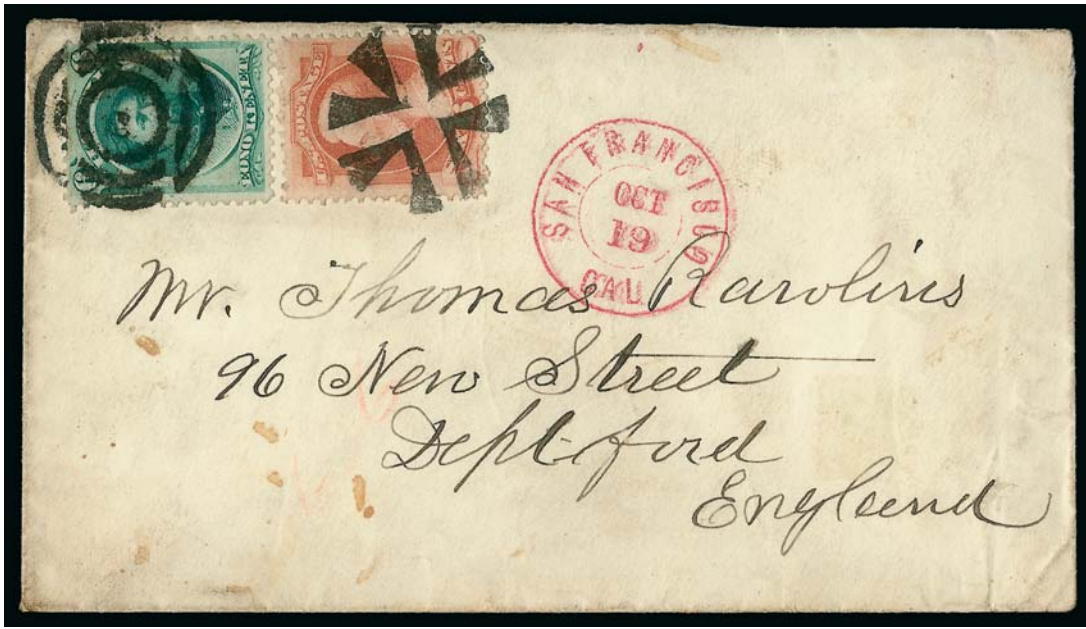 SAN FRANCISCO
OCT
19
CAL.
Mr. Thomas Rawlins
96 New Street
Deptford
England